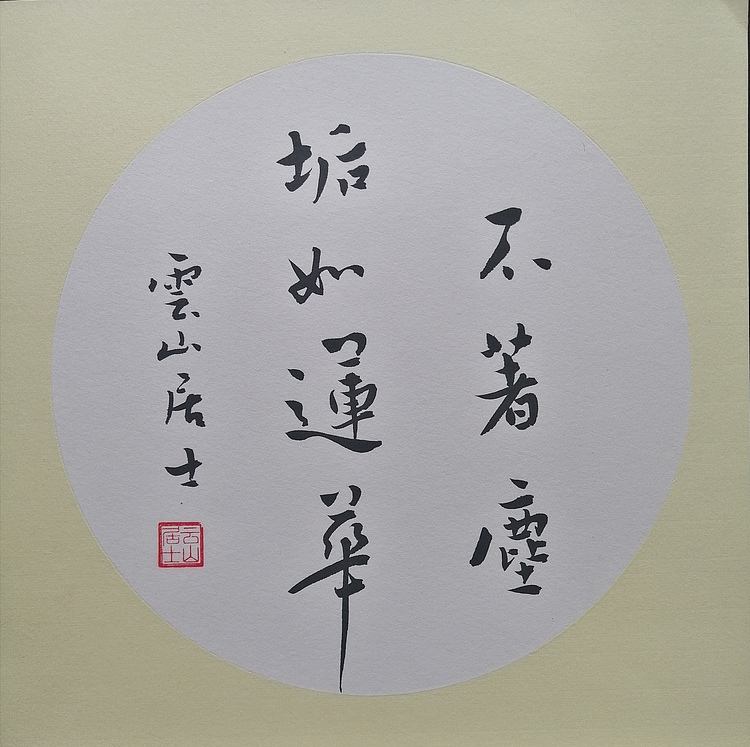 不著塵
垢如蓮華
雲山居士
云山居士